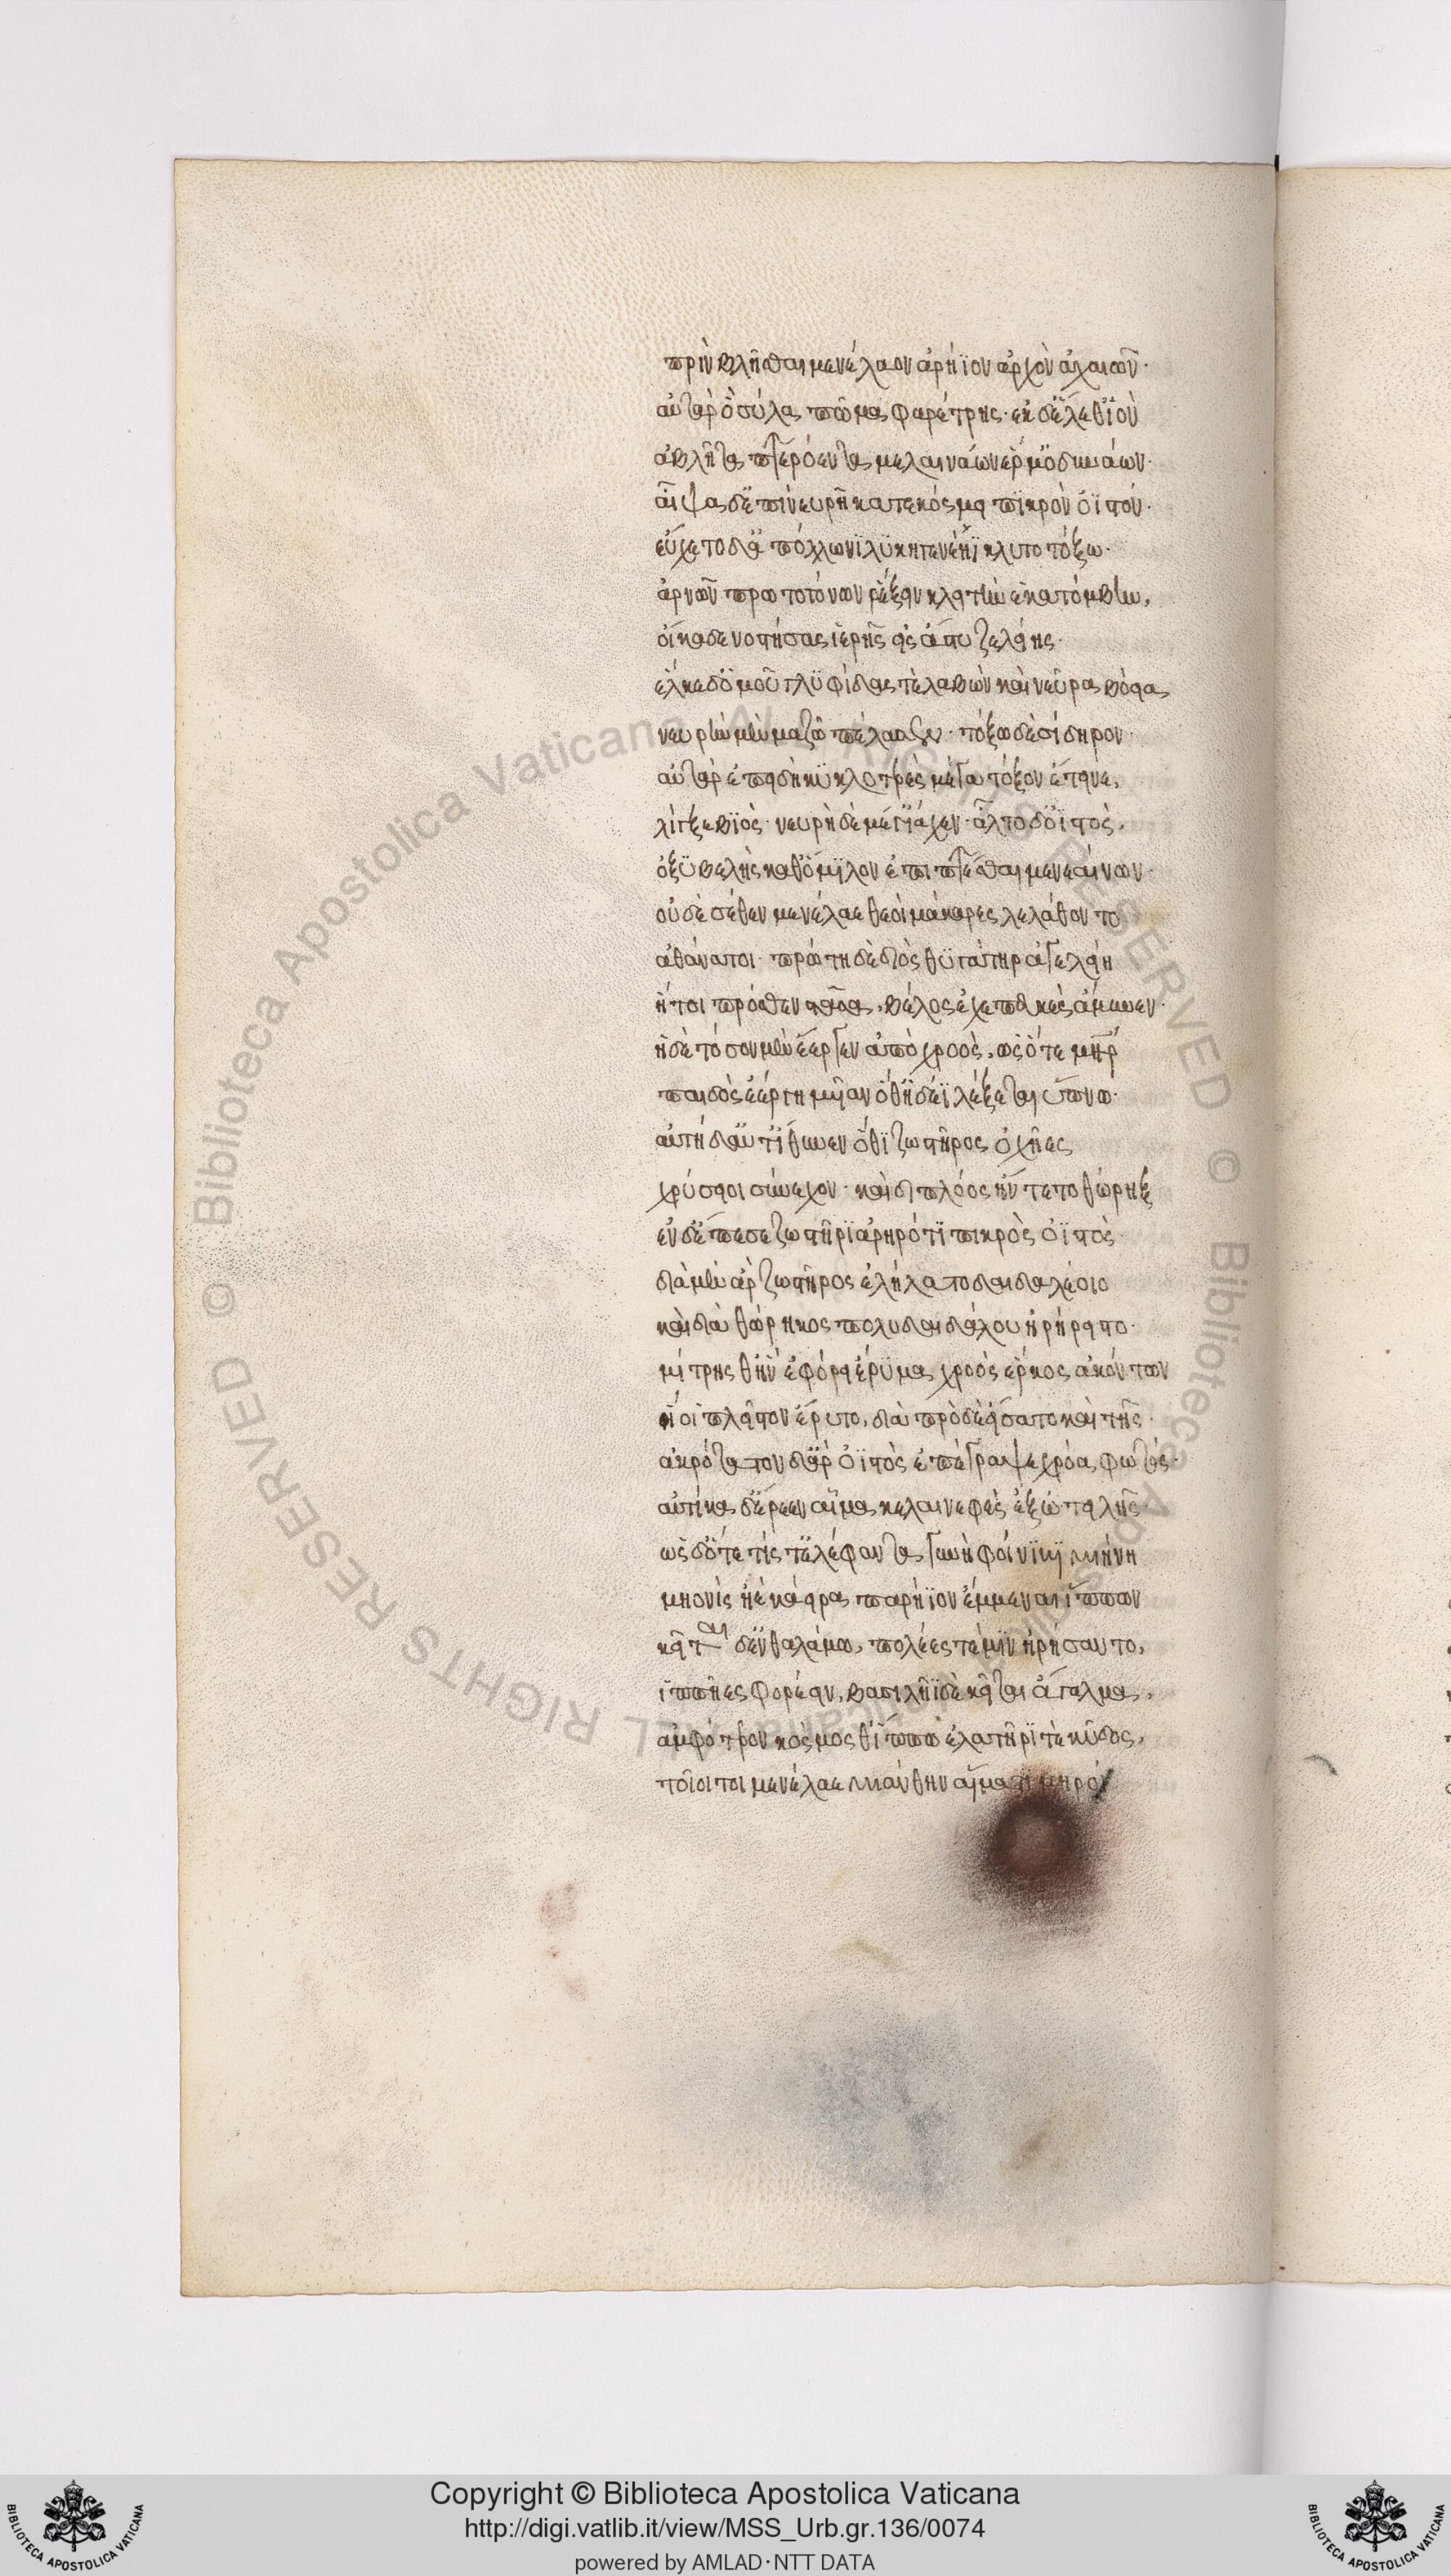 πρὶν βλῆσθαι μενέλαον ἀρήϊον ἀρχὸν ἀχαιῶν·
αὐτὰρ ὃ σύλα πῶμα φαρέτρης· ἐκ δ' ἕλετ' ἰὸν
ἀβλῆτα πτερόεντα μελαινάων ἕρμ' ὀδυνάων·
αἶψα δ' ἐπὶ νευρῇ κατεκόσμει πικρὸν ὀϊστόν·
εὔχετο δ' ἀπόλλωνϊ λυκηγενέϊ κλυτοτόξω·
ἀρνῶν πρωτογόνων ῥέξειν κλειτὴν ἑκατόμβην,
οἴκαδε νοστήσας ἱερῆς εἰς ἄστυ ζελείης·
ἕλκε δ' ὁμοῦ γλυφίδας τὲ λαβὼν καὶ νεῦρα βόεια
νευρὴν μὲν μαζῶ πέλασεν· τόξω δὲ σίδηρον·
αὐτὰρ ἐπειδὴ κυκλοτερὲς μέγα τόξον ἔτεινε,
λίγξε βιὸς· νευρὴ δὲ μέγ' ἴαχεν· ἆλτο δ' ὀϊστὸς,
ὀξυβελὴς καθ' ὅμιλον ἐπιπτέσθαι μενεαίνων·
οὐδὲ σέθεν μενέλαε θεοὶ μάκαρες λελάθοντο
ἀθάνατοι· πρώτη δὲ διὸς θυγάτηρ ἀγελείη
ἥ τοι πρόσθεν στᾶσα, βέλος ἐχεπευκὲς ἄμυνεν·
ἣ δὲ τόσον μὲν ἔεργεν ἀπὸ χροὸς, ὡς ὅτε μήτηρ
παιδὸς ἐέργη μυῖαν ὅθ' ἡδέϊ λέξεται ὕπνω·
αὐτὴ δ' αὖτ' ἴθυνεν ὅθϊ ζωστῆρος ὀχῆες
χρύσειοι σύνεχον· καὶ διπλόος ἤντετο θώρηξ
ἐν δ' ἔπεσε ζωστῆρϊ ἀρηρότϊ πικρὸς ὀϊστὸς
διὰ μὲν ἂρ ζωστῆρος ἐλήλατο δαιδαλέοιο
καὶ διὰ θώρηκος πολυδαιδάλου ἠρήρειστο·
μίτρης θ' ἣν ἐφόρει ἔρυμα χροὸς ἕρκος ἀκόντων
ἥ οἱ πλεῖστον ἔρυτο, διὰ πρὸ δὲ εἴσατο καὶ τῆς·
ἀκρότατον δ' ἂρ ὀϊστὸς ἐπέγραψε χρόα φωτός·
αὐτίκα δ' ἔρρεεν αἷμα κελαινεφὲς ἐξ ὠτειλῆς·
ὡς δ' ὅτε τίς τ' ἐλέφαντα γυνὴ φοίνικϊ μιήνη
μηονὶς ἠὲ κάειρα παρήϊον ἔμμεναι ἵππων
κεῖται δ' ἐν θαλάμω, πολέες τέ μιν ἠρήσαντο,
ἱππῆες φορέειν, βασιλῆϊ δὲ κεῖται ἄγαλμα,
ἀμφότερον κόσμος θ' ἵππω ἐλατῆρϊ τὲ κῦδος,
τοῖοί τοι μενέλαε μιάνθην αἵματϊ μηρόὶ